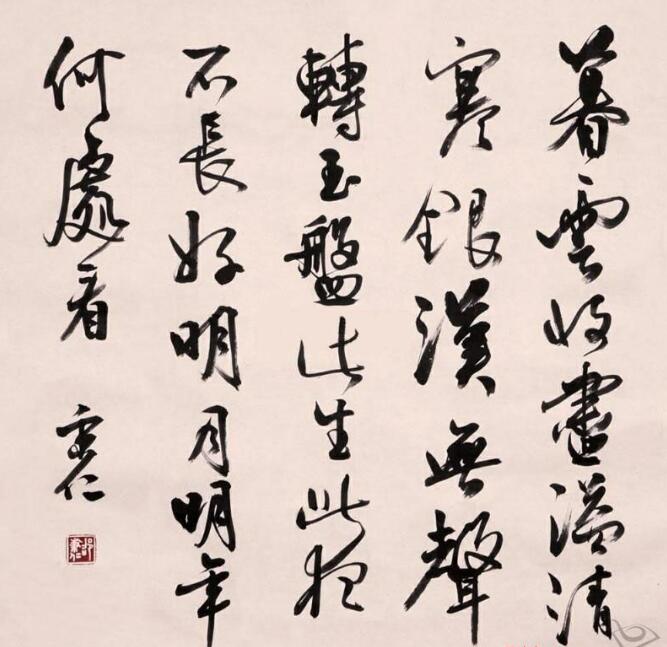 暮雲收盡溢清
寒銀漢無聲
轉玉盤此生此夜
不長好明月明年
何處看